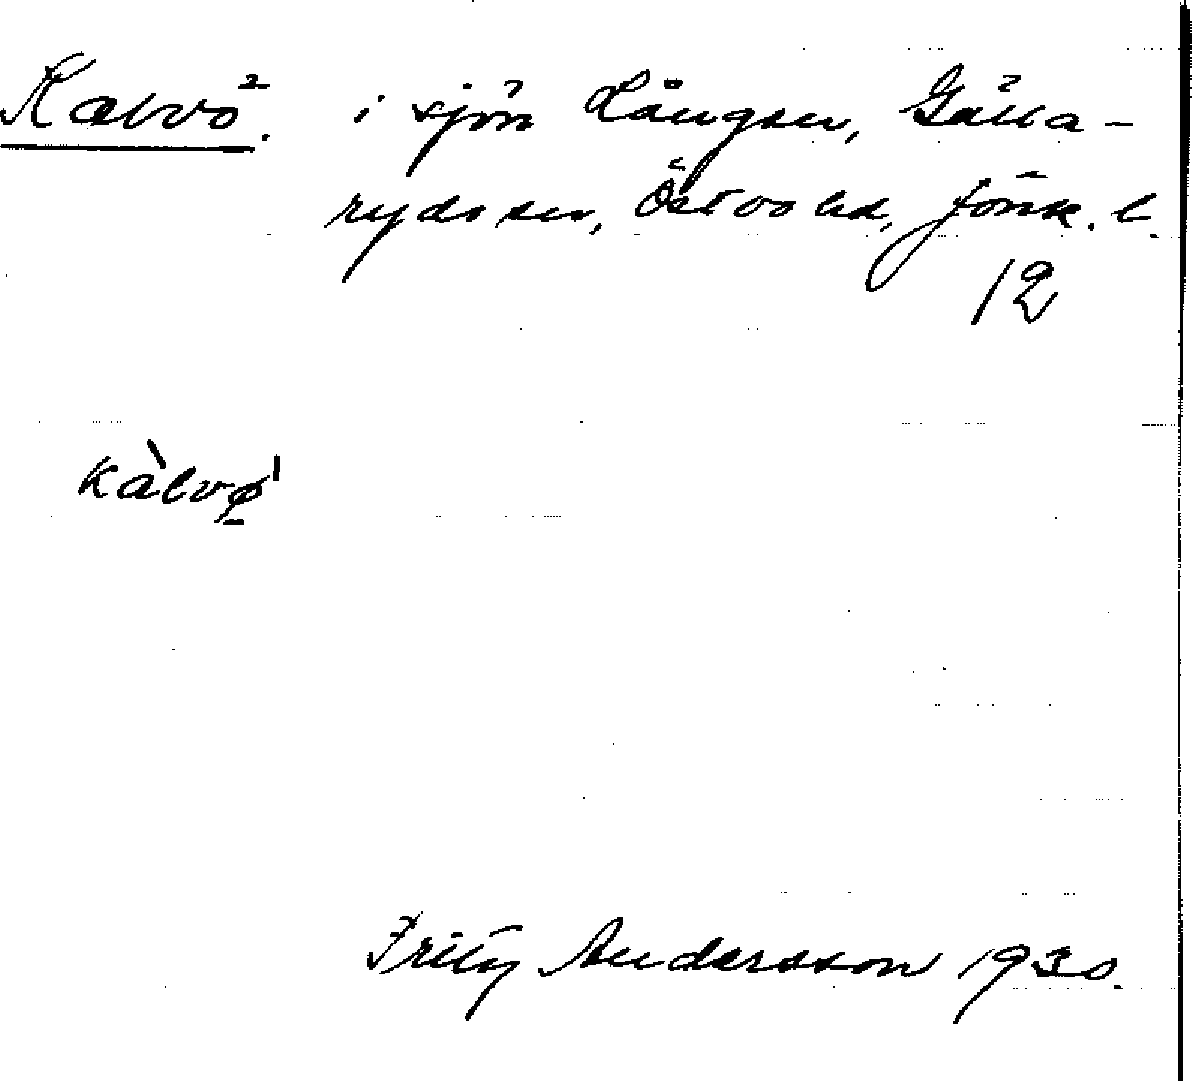 Kalvö. i sjön Långsen, Gälla-
ryds sn, Östbo hd, Jönk. l.
12
kàlvø̲ˈ
Fritz Andersson 1930.